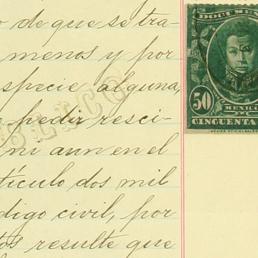 o de que se tra-
menos y por
especie alguna,
pedir resci-
ni aun en el
tículo dos mil
digo civil, por
tos resulte que
DOCUMEN
50
MEXICO
CINCUENTA